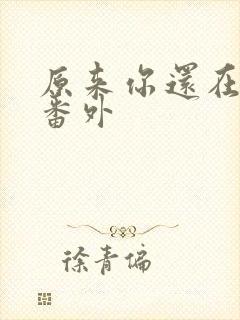 原来你還在
番外
徐青偏